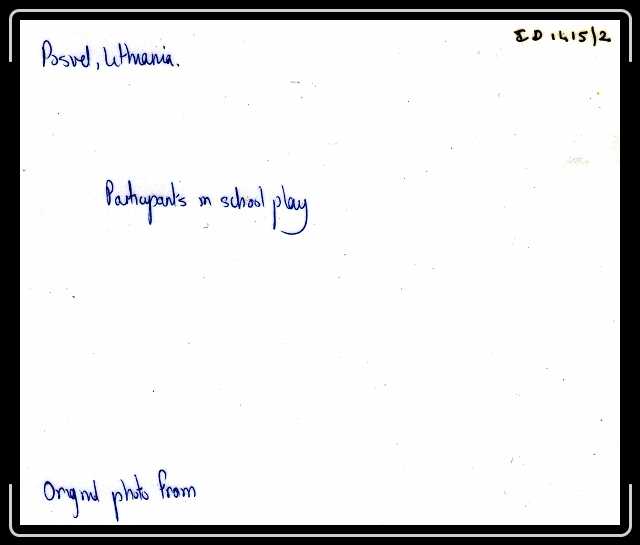 ID 1415/2
Posvel, Lithuania.
Participants in school play
Original photo from